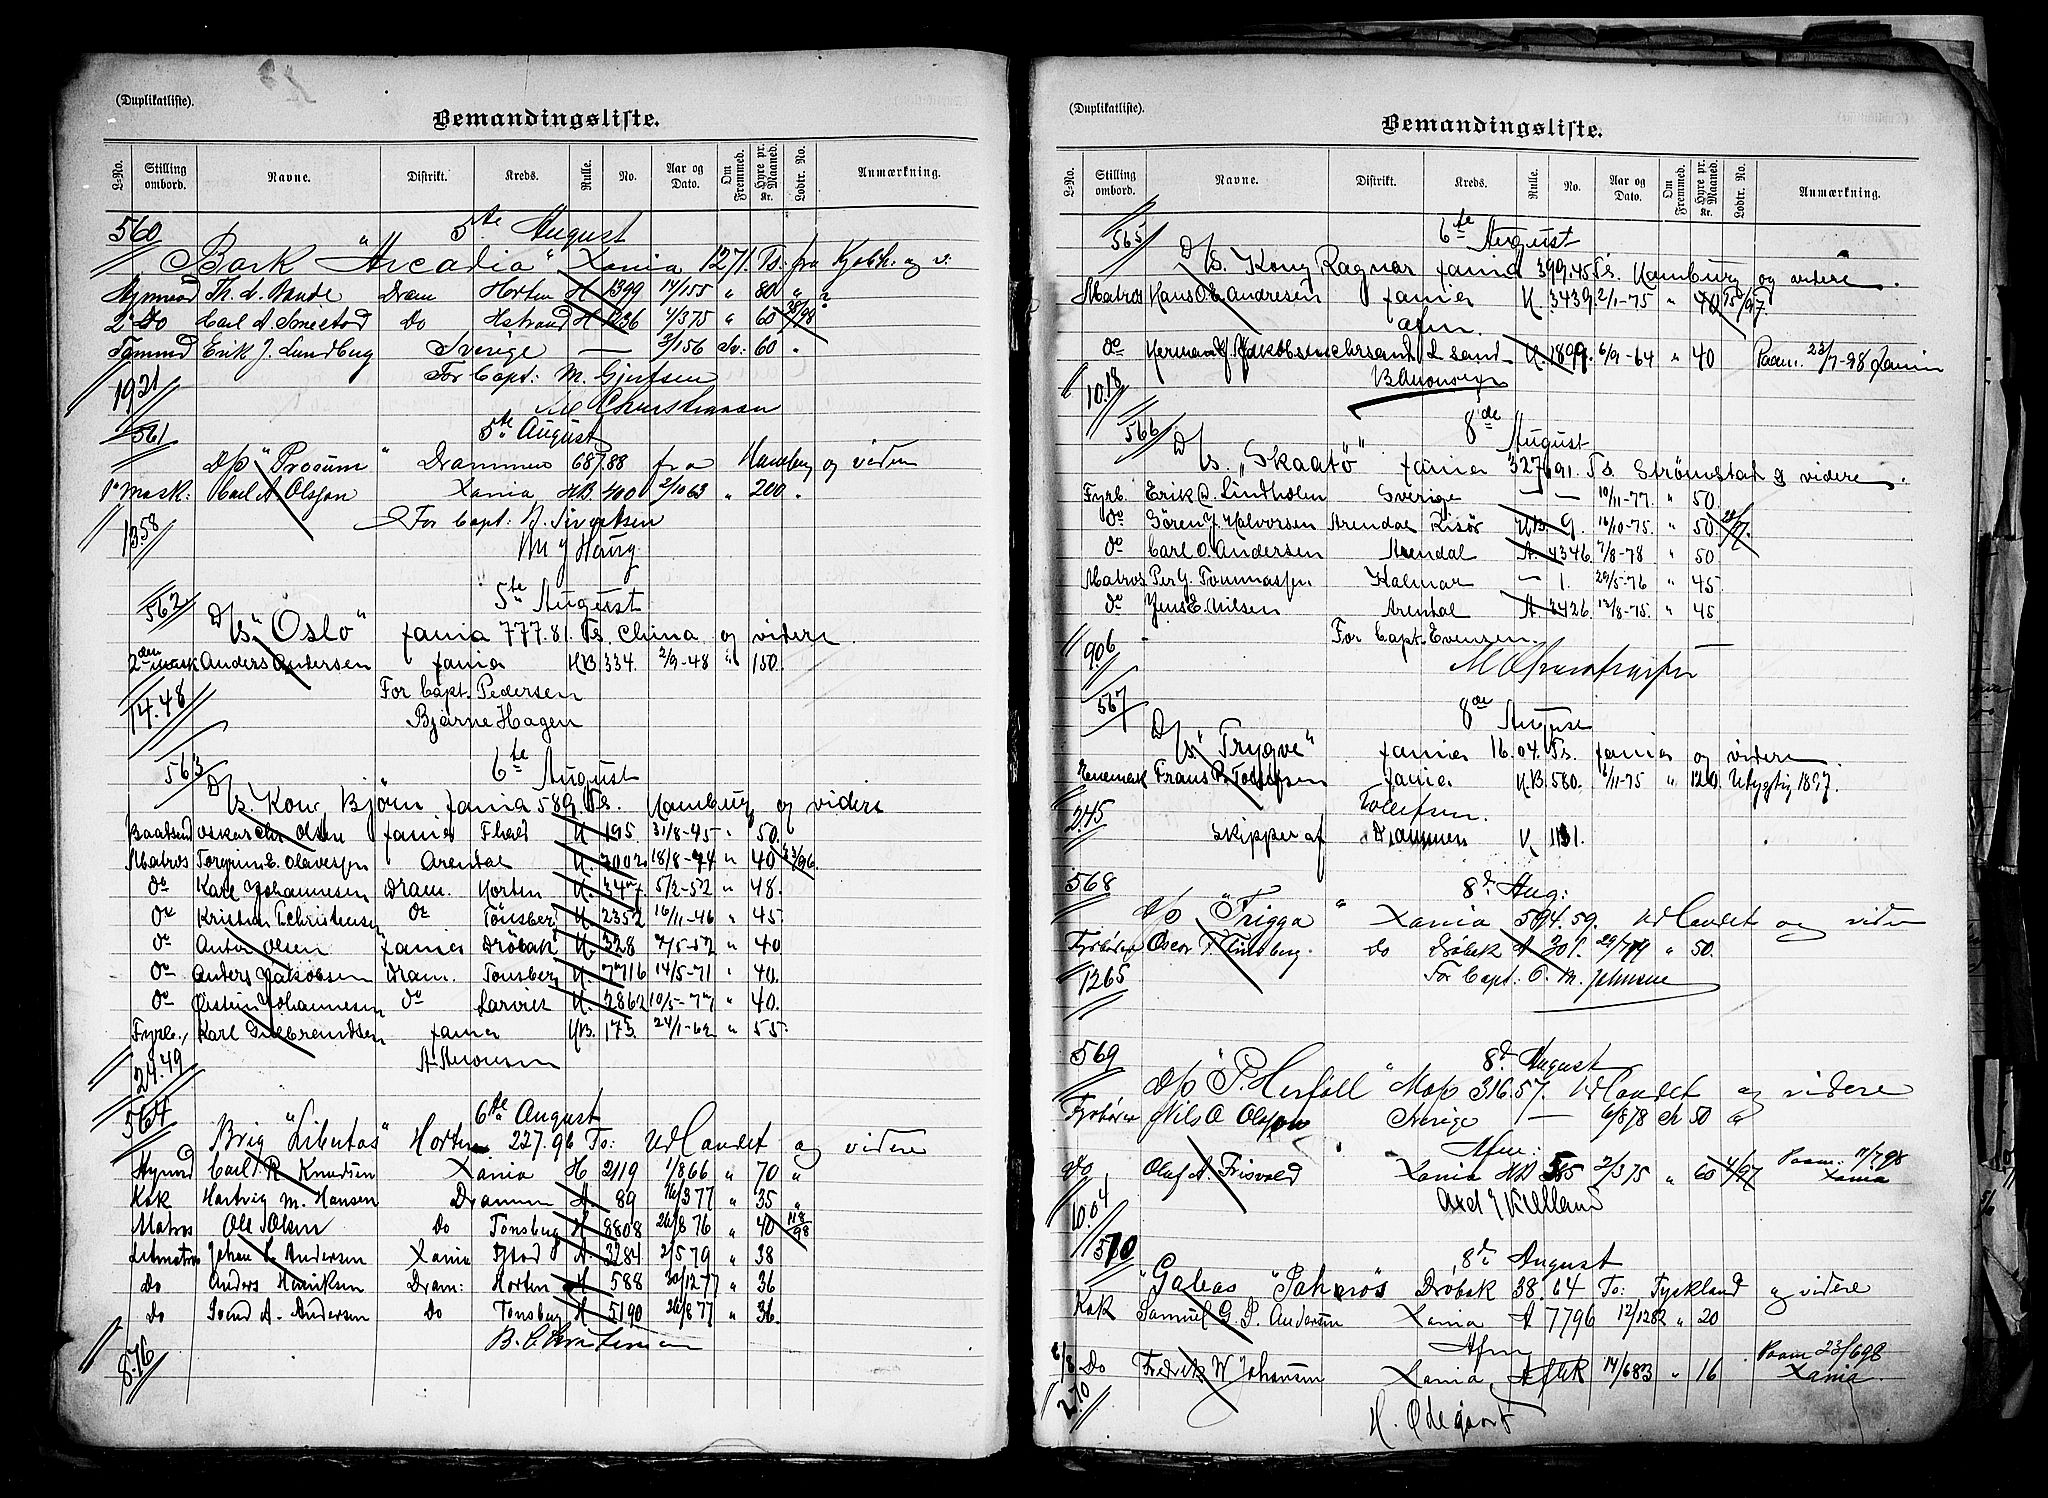 (Duplikatliste).
Bemandingsliste.
L-No. Stilling ombord. Navne. Distrikt. Kreds. Rulle. No. Aar og Dato. Om Fremmed. Hyre pr. Maaned. Kr. Lodtr. No. Anmærkning.
560 5te August
Bark "Arcadia" Xania 1271. Ts. fra Kjøbh. og v:
Styrmd Th. A. Bande Dram Horten H 1399 14/155 " 80 "
2 Do Carl A. Smestad Do Hstrand H 1236 4/375 " 60 28/98
Tømmd Erik J. Lundberg Sverige — 3/156 Sv: 60 "
For Capt: M. Gjertsen
1921 Christiansen
561 5te August
D/s "Prosum" Drammen 687.88 fra Hamburg og videre
1e Mask: Carl A. Olsson Xania HB. 400 2/1063 " 200 "
For Capt: N. Sivertsen
13.58 M J Haug
562 5te August
D/s "Oslo" Xania 777.81. Ts. China og videre
2den Mask Anders Andersen Xania HB. 334. 2/9-48 " 150.
For Capt. Pedersen
14.48 Bjarne Hagen
563 6te August
D/s Kong Bjørn Xania 589 Ts. Hamburg og videre
Baatsmd Oskar Chr. Olsen Xania Fhald H. 195. 31/8-45 " 50.
Matros Torgrim E. Olavessen Arendal H. 3002 18/8-74 " 40 23/96
do Karl Johannesen Dram. Horten H. 347. 5/2-52 " 48.
do Kristian P. Christensen do Tönsberg H. 2352 16/11-46 " 45
do Anton Olsen Xania Dröbak H. 328 7/5-52 " 40
do Anders Jakobsen Dram. Tönsberg H. 7716 14/5-71 " 40.
do Øistein Johannesen do Larvik H. 2862 10/5-77 " 40.
Fyrb. Karl Gulbrandsen Xania HB. 173. 24/1-62 " 55
24.49
564 6te August
Brig "Libertas" Horten 227.96 Ts: Udlandet og videre
Styrmd Carl R. Knudsen Xania H 2119 1/866 " 70 "
Kok Hartvig M. Hansen Dramm A. 89 16/377 " 35 "
Matros Ole Olsen Do Tonsberg H 8808 26/8 76 " 40 118/98
Letmatros Johan L. Andersen Xania Fstad A. 3284 2/579 " 38
Do Anders Henriksen Dram: Horten H 588 30/1277 " 36
Do Svend A. Andersen Do Tonsberg H 5190 26/877 " 36
B. Christensen
8.76
(Duplikatliste).
Bemandingsliste.
L-No. Stilling ombord. Navne. Distrikt. Kreds. Rulle. No. Aar og Dato. Om Fremmed. Hyre pr. Maaned. Kr. Lodtr. No. Anmærkning.
565 6te August
D/s. Kong Ragnar Xania 399.45 Ts. Hamburg og videre.
Matros Hans O. E. Andresen Xania H. 3439. 2/1-75 " 40 15/97.
afm.
do Herman J. Jakobsen Chrsand L sand H. 1899. 6/9-64 " 40 Paam. 23/7-98 Xania
10.18
566 8de August
D/s. "Skaatö" Xania 327.91. Ts. Strömstad og videre.
Fyrb. Erik A. Lindholm Sverige — — 10/11-77. " 50.
do Sören J. Halvorsen Arendal Risör HB 9. 16/10-75. " 50.
do Carl O. Andersen Arendal A. 4346. 7/8-78 " 50
Matros Per G. Tommassen Kalmar — 1. 29/5-76 " 45.
do Jens E. Nilsen Arendal A. 3426. 12/8-75. " 45
For Capt. Evensen.
9.06
567 8de August
D/s. "Trygve" Xania 16.04. Ts. Xania og videre.
Enemask Frans P. Tollefsen Xania H.B. 580. 6/11-75 " 120. Udygtig 1897.
Tollefsen.
2.45 Skipper af Drammen H 1131.
568 8d. Aug:
D/s "Frigga" Xania 594.59. Udlandet og videre
Fyrböter Oscar F. Do Dröbak A 201. 50.
For Capt: O. M. Johnsen
1265
569 8d. August
D/s "P. Herföll" Moss 316.57. Udlandet og videre
Fyrböter Nils O Olsson Sverige — 6/878 50
Afm:
do Olaf A. Frisvold Xania HB 585 2/375 " 60 4/97 Paam: 11/798 Xania
Axel Kielland
10.04
570 8d. August
"Galeas" Dröbak 38.64 To: Tyskland og videre
Kok Samuel G. P. Andersen Xania A 7796 12/1282 " 20
Afm Paam 23/698
8/8 Do Fredrik W. Johansen Xania 14/683 " 16 Xania.
2.70 H. Ødegaard